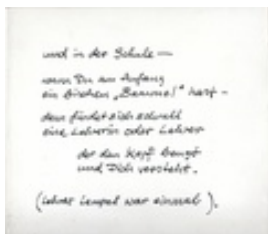 und in der Schule —
wenn Du am Anfang
ein bißchen „Bammel“ hast –
dann findet sich schnell
eine Lehrerin oder Lehrer
der den Kopf beugt
und Dich versteht.
(Lehrer Lempel war einmal).